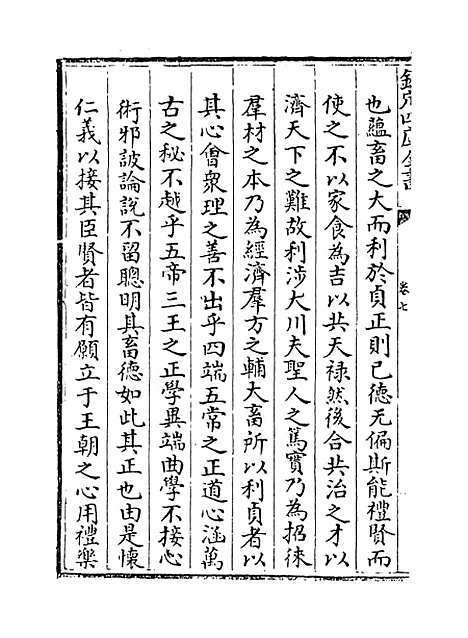 欽定四庫全書
卷七
也蘊畜之大而利於貞正則已德无偏斯能禮賢而
使之不以家食為吉以共天禄然後合共治之才以
濟天下之難故利涉大川夫聖人之篤實乃為招徠
羣材之本乃為經濟羣方之輔大畜所以利貞者以
其心會衆理之善不出乎四端五常之正道心涵萬
古之秘不越乎五帝三王之正學異端曲學不接心
術邪詖論說不留聰明其畜德如此其正也由是懷
仁義以接其臣賢者皆有願立于王朝之心用禮樂